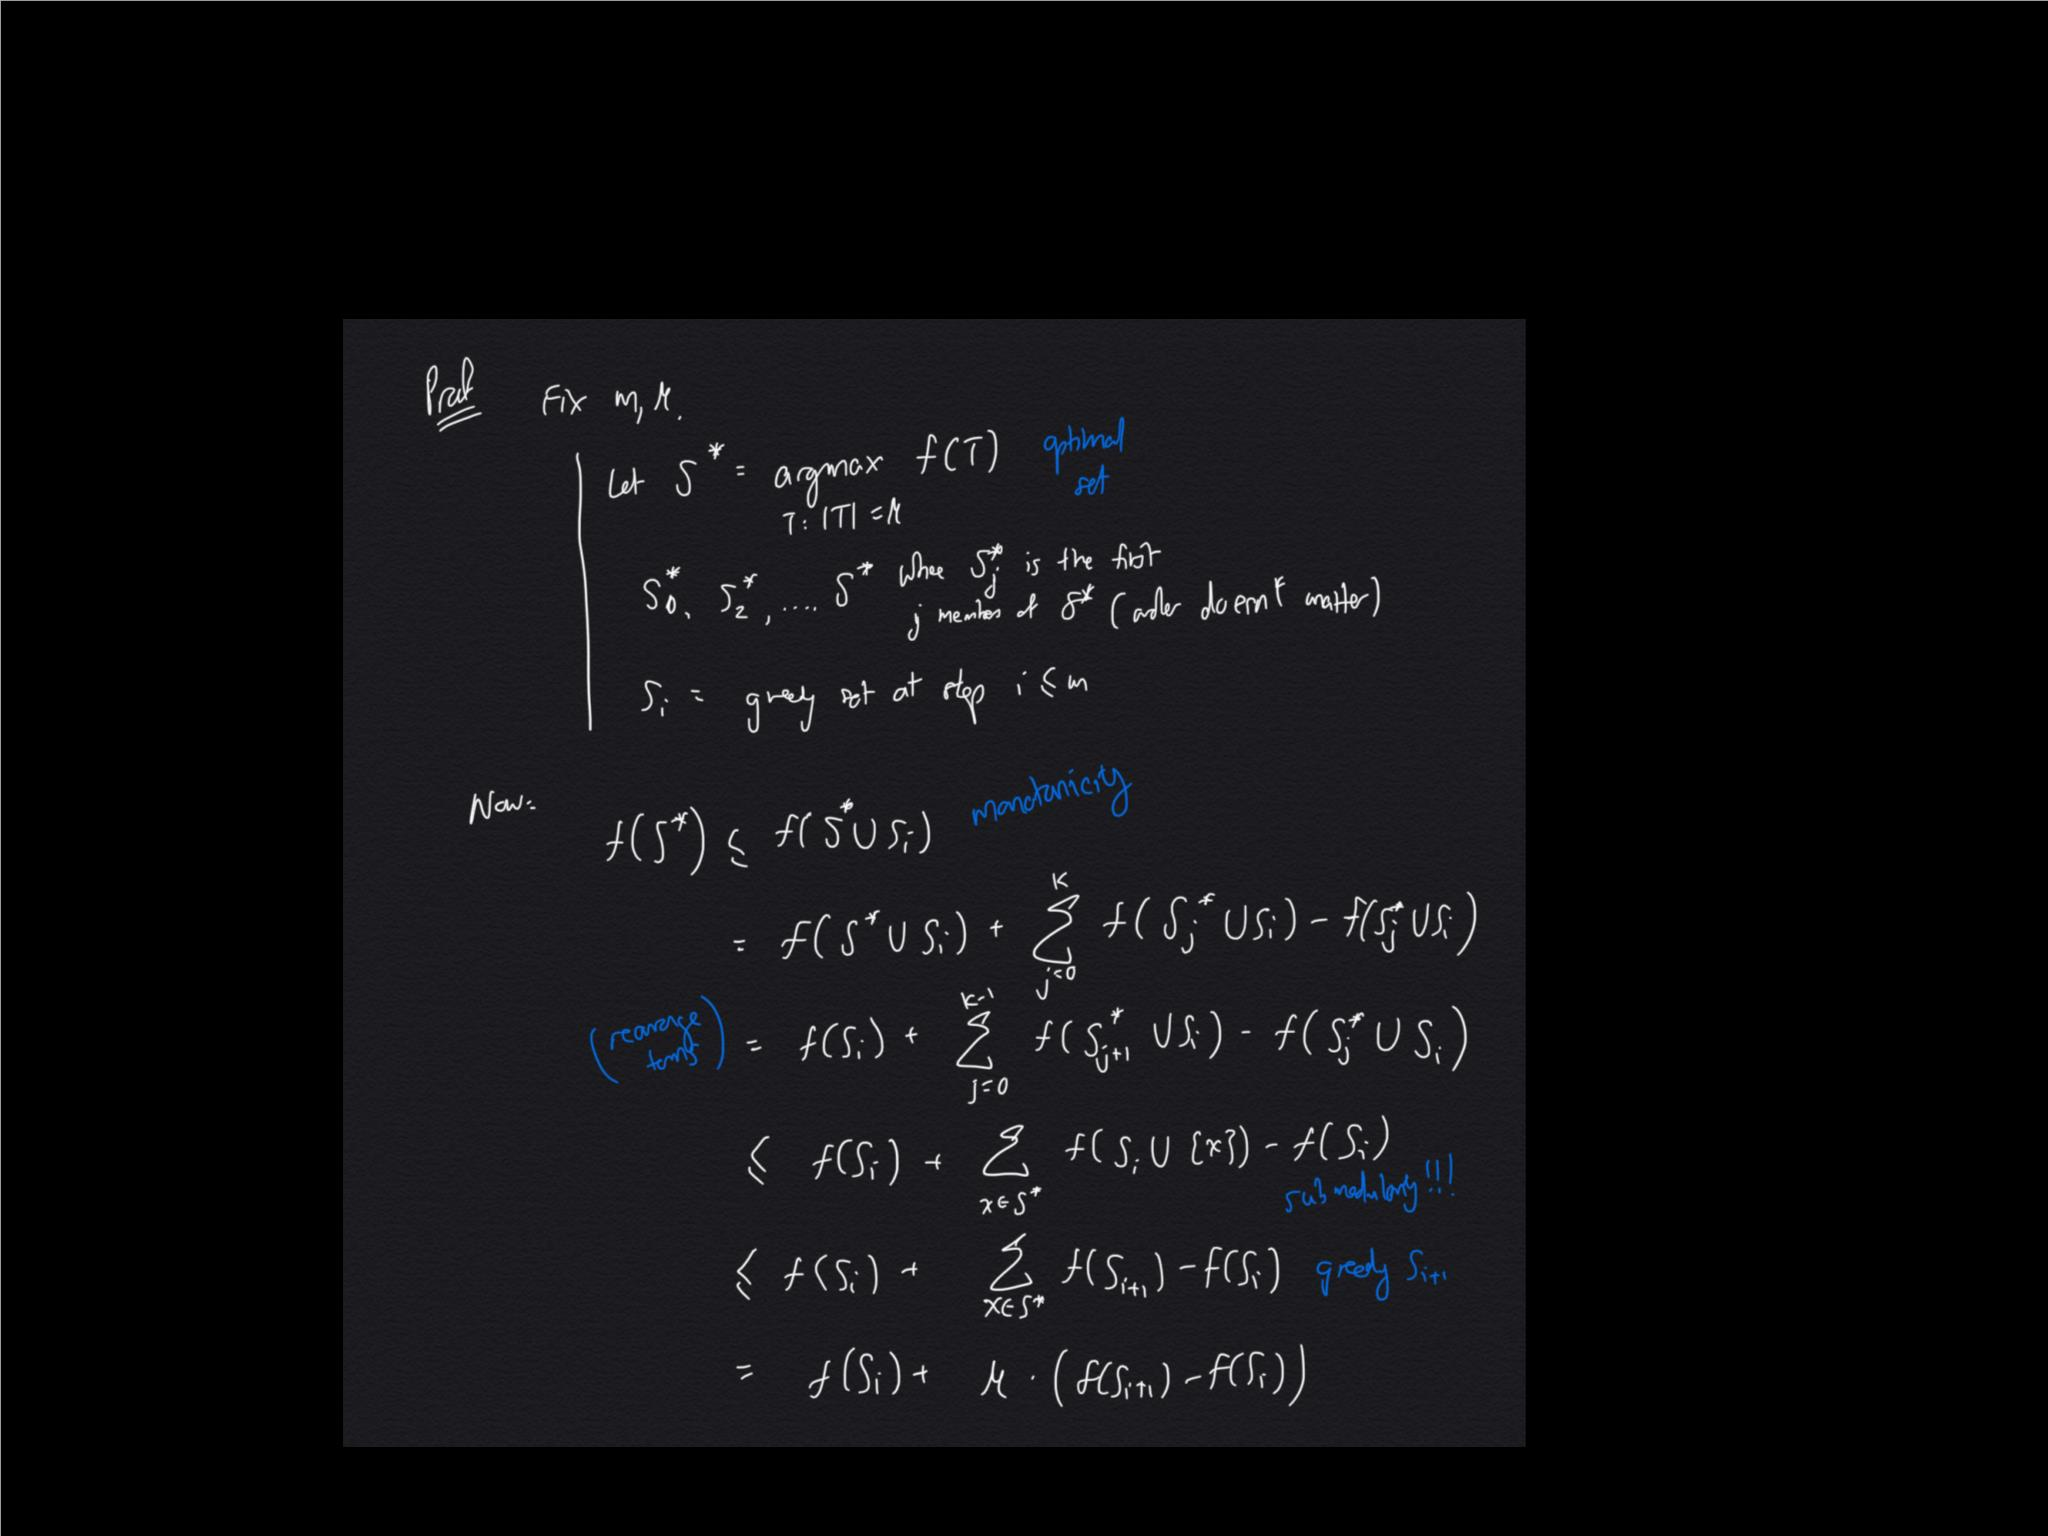 Proof Fix m, K.
Let S* = argmax f(T) optimal
T: |T| = K set
S₀*, S₂*, .... S* where Sⱼ* is the first
j members of S* (order doesn't matter)
Sᵢ = greedy set at step i ≤ m
Now: f(S*) ≤ f(S* ∪ Sᵢ) monotonicity
= f(S* ∪ Sᵢ) + ∑_{j=0}^{K} f(Sⱼ* ∪ Sᵢ) - f(Sⱼ* ∪ Sᵢ)
(rearrange terms) = f(Sᵢ) + ∑_{j=0}^{K-1} f(Sⱼ₊₁* ∪ Sᵢ) - f(Sⱼ* ∪ Sᵢ)
≤ f(Sᵢ) + ∑_{x∈S*} f(Sᵢ ∪ {x}) - f(Sᵢ)
submodularity!!!
≤ f(Sᵢ) + ∑_{x∈S*} f(Sᵢ₊₁) - f(Sᵢ) greedy Sᵢ₊₁
= f(Sᵢ) + K · (f(Sᵢ₊₁) - f(Sᵢ))